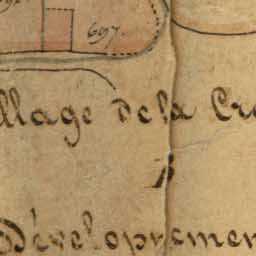 697.
llage de la Cr
B
Développemen